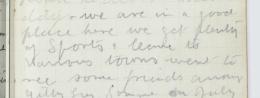 days & we are in a good
place here we get plenty
of Sports & leave to
various towns went to
see some friends among